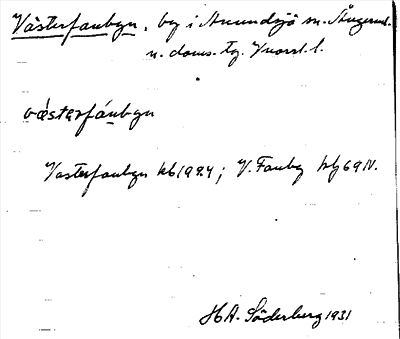 Västerfanbyn, by i Anundsjö sn. Ångerml.
n. doms. tg. Vnorrl. l.
væ̀stərfánbyn
Vasterfanbyn kb 1924; V. Fanby kbj 69 IV.
H A. Söderberg 1931